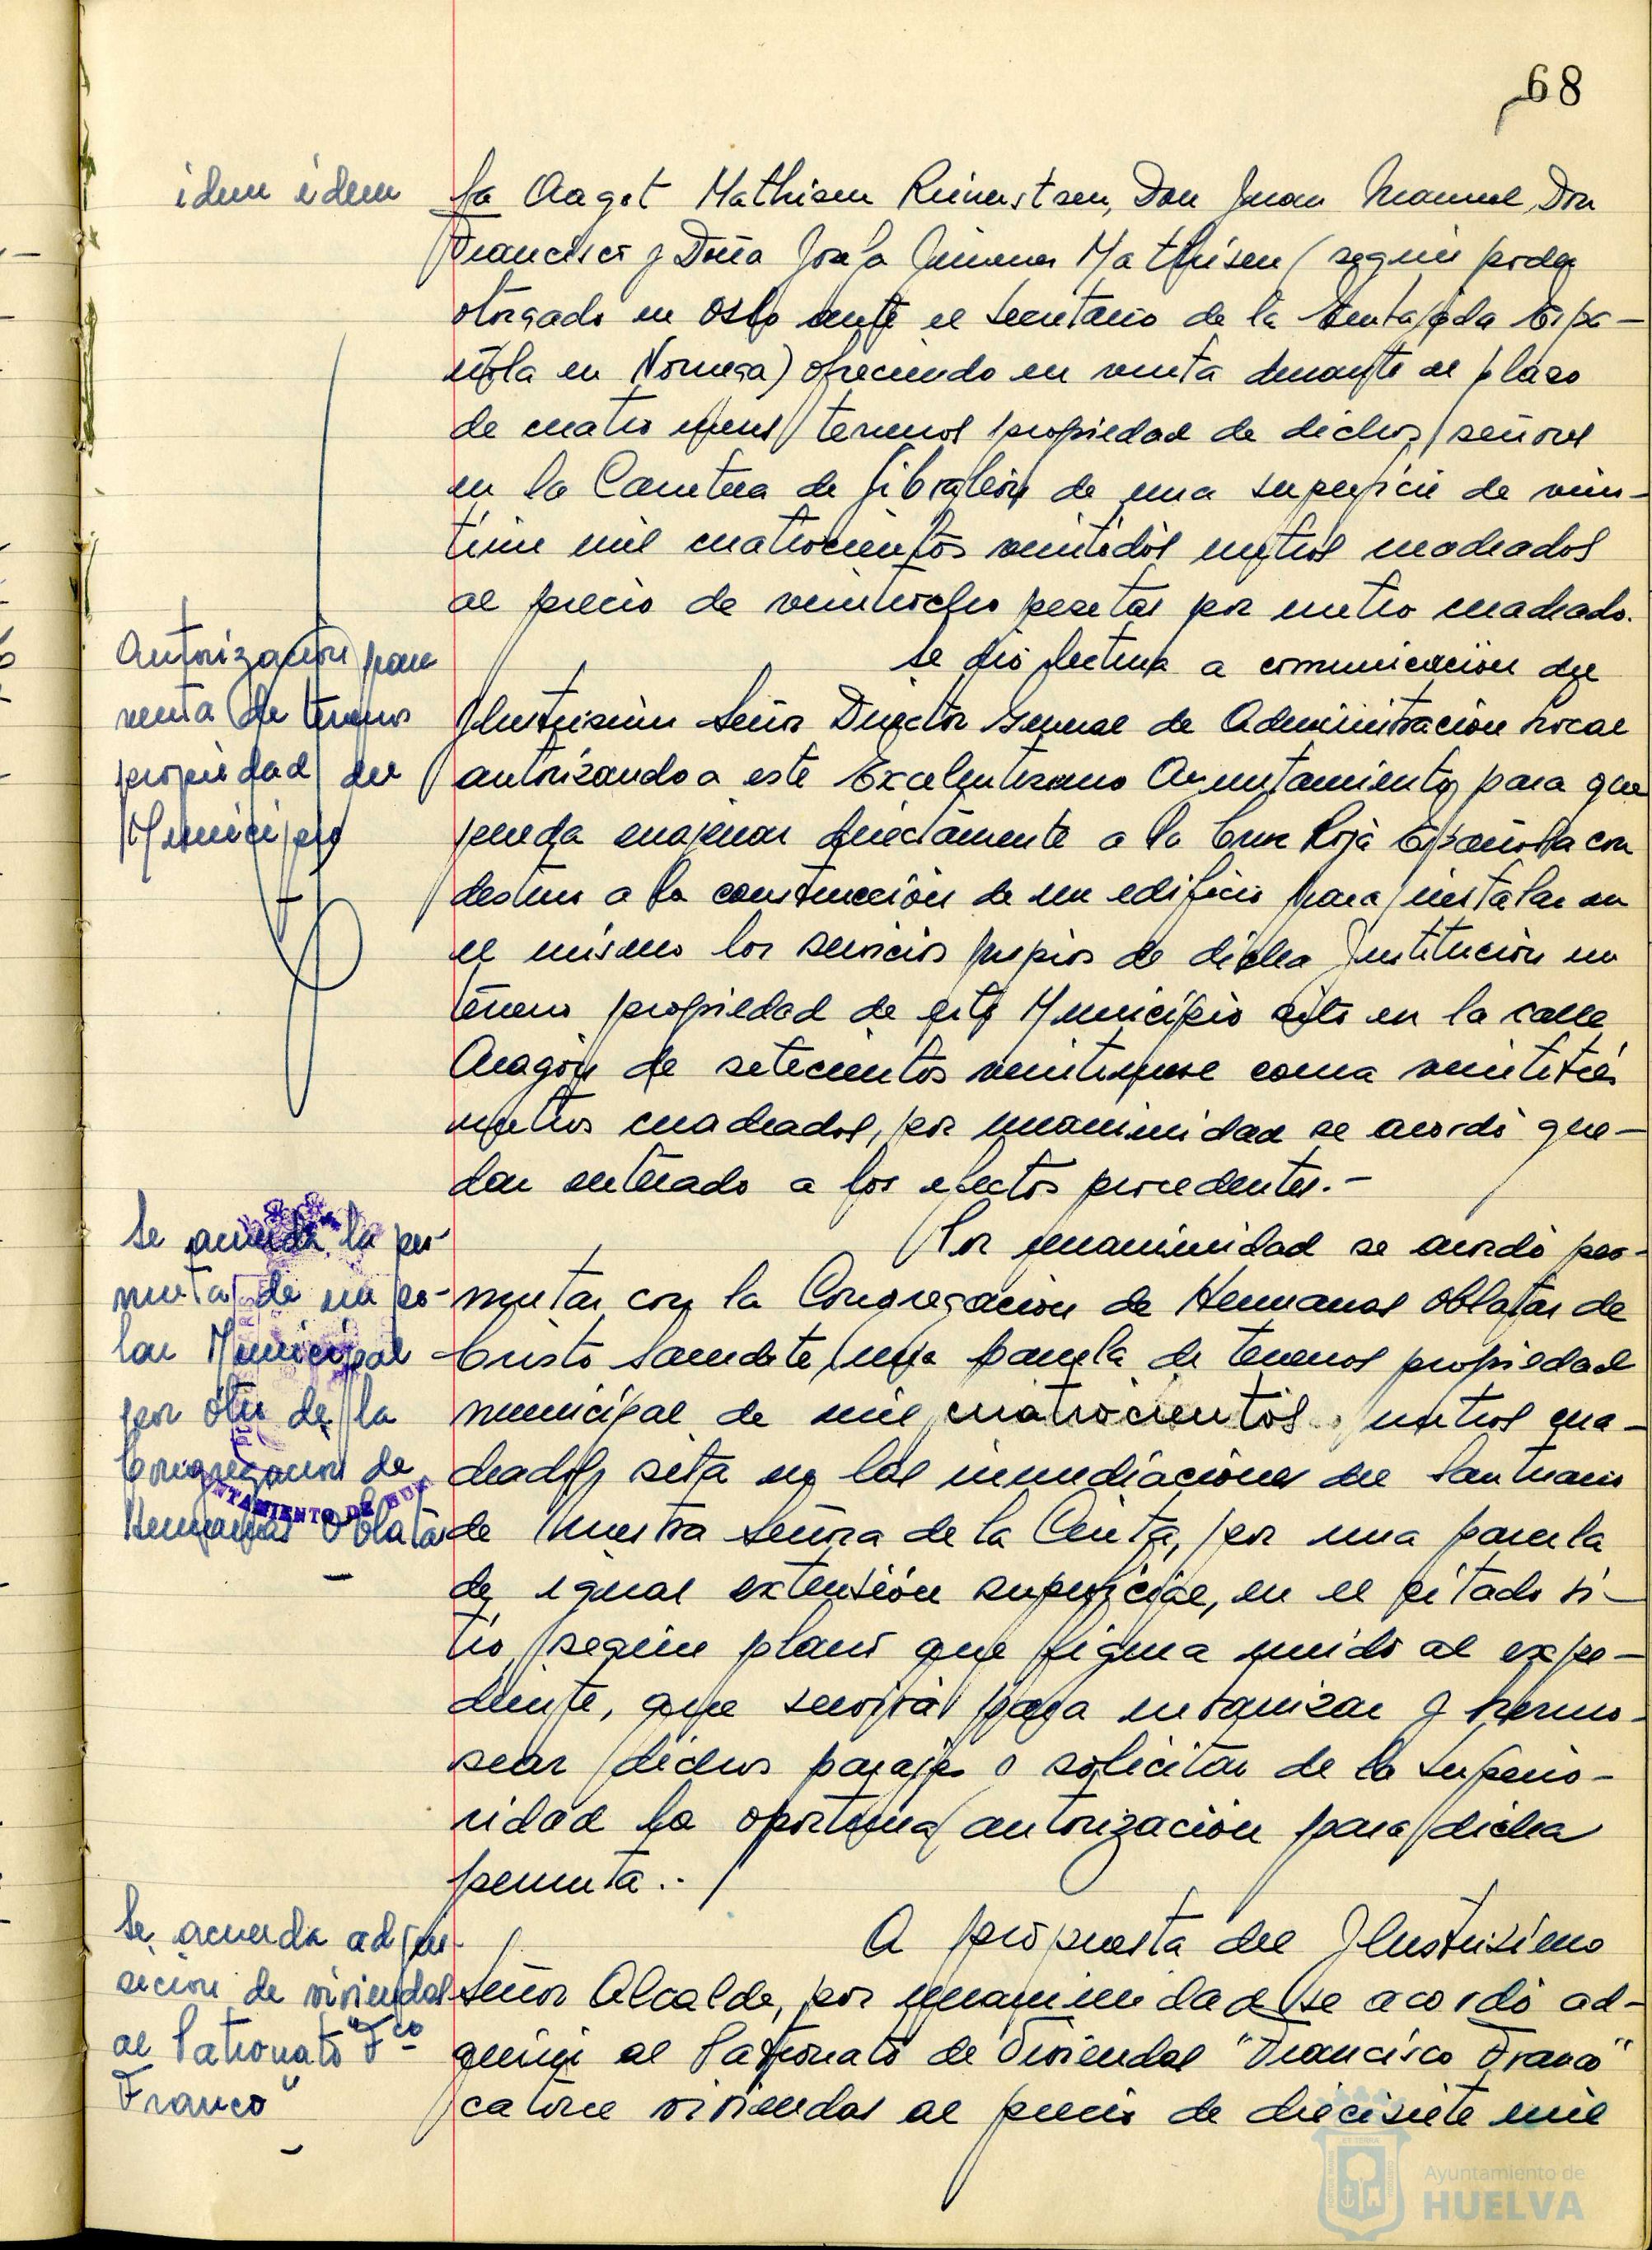 68
idem idem
ña Aagot Mathisen Reinertsen, Don Juan Manuel, Don
Francisco y Doña Josefa Jimenez Mathisen (según poder
otorgado en Oslo ante el Secretario de la Embajada Espa-
ñola en Noruega) ofreciendo en venta durante el plazo
de cuatro meses terrenos propiedad de dichos señores
en la Carretera de Gibraleón de una superficie de vein-
tiun mil cuatrocientos veintidós metros cuadrados
al precio de veintiocho pesetas por metro cuadrado.
Autorización para
venta de terrenos
propiedad del
Municipio
Se dió lectura a comunicación del
Ilustrisimo Señor Director General de Administración Local
autorizando a este Excelentisimo Ayuntamiento para que
pueda enajenar directamente a la Cruz Roja Española con
destino a la construcción de un edificio para instalar en
el mismo los servicios propios de dicha Institución un
terreno propiedad de este Municipio sito en la calle
Aragón de setecientos veintinueve coma veintitrés
metros cuadrados, por unanimidad se acordó que-
dar enterado a los efectos procedentes.-
Se acuerda la per-
muta de un so-
lar Municipal
por otro de la
Congregación de
Hermanas Oblatas
AYUNTAMIENTO DE HUELVA
Por unanimidad se acordó per-
mutar con la Congregación de Hermanas Oblatas de
Cristo Sacerdote, una parcela de terrenos propiedad
municipal de mil cuatrocientos metros cua-
drados sita en las inmediaciones del Santuario
de Nuestra Señora de la Cinta, por una parcela
de igual extensión superficial, en el citado si-
tio, según plano que figura unido al expe-
diente, que servirá para urbanizar y hermo-
sear dichos parajes y solicitar de la Superio-
ridad la oportuna autorización para dicha
permuta.-
Se acuerda adqui-
sición de viviendas
al Patronato "Fco
Franco"
A propuesta del Ilustrisimo
Señor Alcalde, por unanimidad se acordó ad-
quirir al Patronato de Viviendas "Francisco Franco"
catorce viviendas al precio de diecisiete mil
Ayuntamiento de
HUELVA